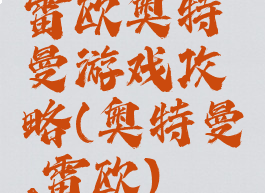 雷欧奥特
曼游戏攻
略(奥特曼
雷欧)